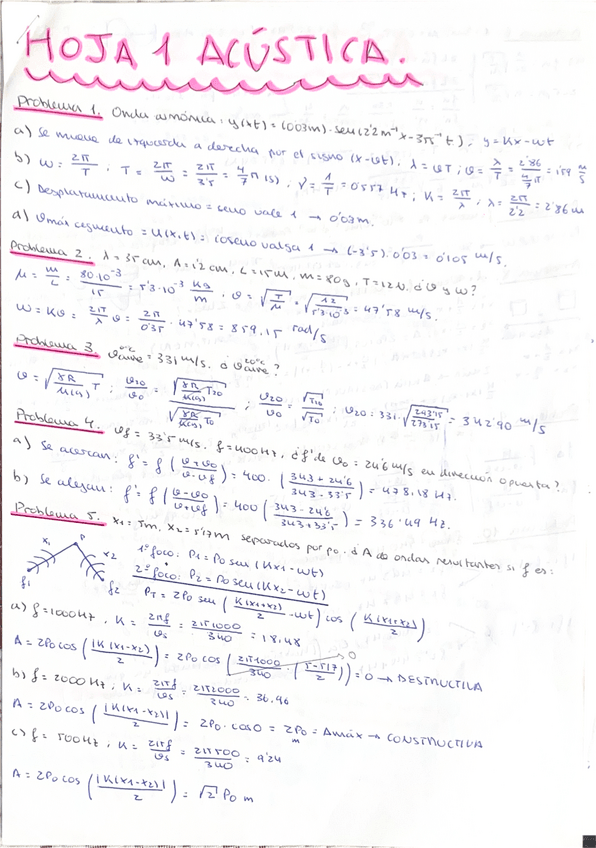 HOJA 1 ACÚSTICA.
Problema 1. Onda armónica: y(x,t) = (0'03m)·sen(2'2m⁻¹x - 3'5s⁻¹t), y = Kx - wt
a) Se mueve de izquierda a derecha por el signo (x-vt). λ = vT; v = λ/T = 2'86/(4/7 π) = 1'59 m/s
b) w = 2π/T ; T = 2π/w = 2π/3'5 = 4/7 π (s), ν = 1/T = 0'557 Hz ; K = 2π/λ, λ = 2π/2'2 = 2'86 m
c) Desplazamiento máximo = seno vale 1 → 0'03m.
d) v máx segmento = u(x,t) = coseno valga 1 → (-3'5)·0'03 = 0'105 m/s.
Problema 2. λ = 35 cm, A = 1'2 cm, L = 15 m, m = 80 g, T = 12 N. ¿v y w?
μ = m/L = 80·10⁻³/15 = 5'3·10⁻³ kg/m, v = √(T/μ) = √(12/5'3·10⁻³) = 47'58 m/s.
w = Kv = 2π/λ v = 2π/0'35 · 47'58 = 859,15 rad/s
Problema 3. v aire 0ºC = 331 m/s. ¿v aire 20ºC?
v = √(γR/M(g) T) ; v20/v0 = √(γR/M(g) T20)/√(γR/M(g) T0) ; v20/v0 = √T20/√T0 ; v20 = 331·√(293'15/273'15) = 342'90 m/s
Problema 4. vf = 33'5 m/s, f = 400Hz, ¿f' de vo = 24'6 m/s en dirección opuesta?
a) Se acercan: f' = f (v+vo/v-vf) = 400· (343+24'6/343-33'5) = 478,18 Hz.
b) Se alejan: f' = f (v-vo/v+vf) = 400 (343-24'6/343+33'5) = 336'49 Hz.
Problema 5. x1 = 5m, x2 = 5'17m separados por po. ¿A de ondas resultantes si f es:
x1 P x2
f1 f2
1º foco: P1 = Po sen (Kx1 - wt)
2º foco: P2 = Po sen (Kx2 - wt)
PT = 2Po sen (K(x1+x2)/2 - wt) cos (K(x1-x2)/2)
a) f = 1000Hz, K = 2πf/vs = 2π1000/340 = 18'48
A = 2Po cos (|K(x1-x2)|/2) = 2Po cos (2π1000/340 · (5-5'17/2)) = 0 → DESTRUCTIVA
b) f = 2000 Hz, K = 2πf/vs = 2π2000/340 = 36'96
A = 2Po cos (|K(x1-x2)|/2) = 2Po · cos0 = 2Po m = Amáx → CONSTRUCTIVA
c) f = 500Hz, K = 2πf/vs = 2π500/340 = 9'24
A = 2Po cos (|K(x1-x2)|/2) = √2 Po m